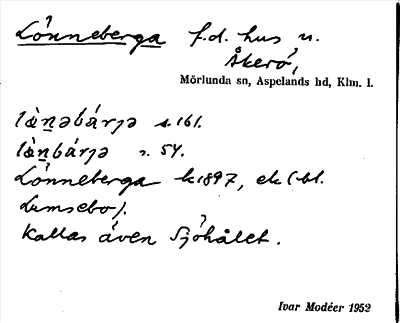 Lönneberga f.d. hus u.
Åkerö,
Mörlunda sn, Aspelands hd, Klm. l.
lὰn̠əbárjə s. 161.
lὰn̠bárjə s. 54.
Lönneberga k 1897, ek (bl.
Lumsebo).
Kallas även Sjöhålet.
Ivar Modéer 1952